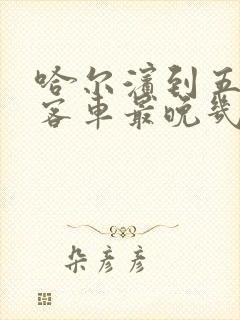 哈尔滨到五
客车最晚几
朵彦彦